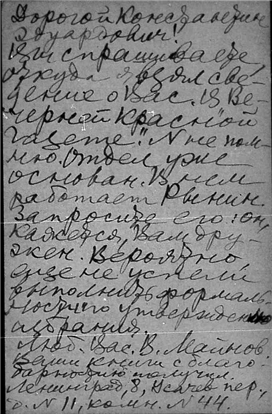 Дорогой Константин
Эдуардович!
Вы спрашиваете,
откуда я взял све-
дение о Вас. Из Ве-
черней Красной
Газеты". N не пом-
ню. Отдел уже
основан. В нем
работает Рынин.
Запросите его: он,
кажется, Вам дру-
жен. Вероятно
еще не успели
выполнить формаль-
ностью утверждения
избрания.
Люб. Вас В. Майнов
Ваши книги с благо-
дарностью получил.
Ленинград, 8, пер,
д. N 11, комн. N 44.